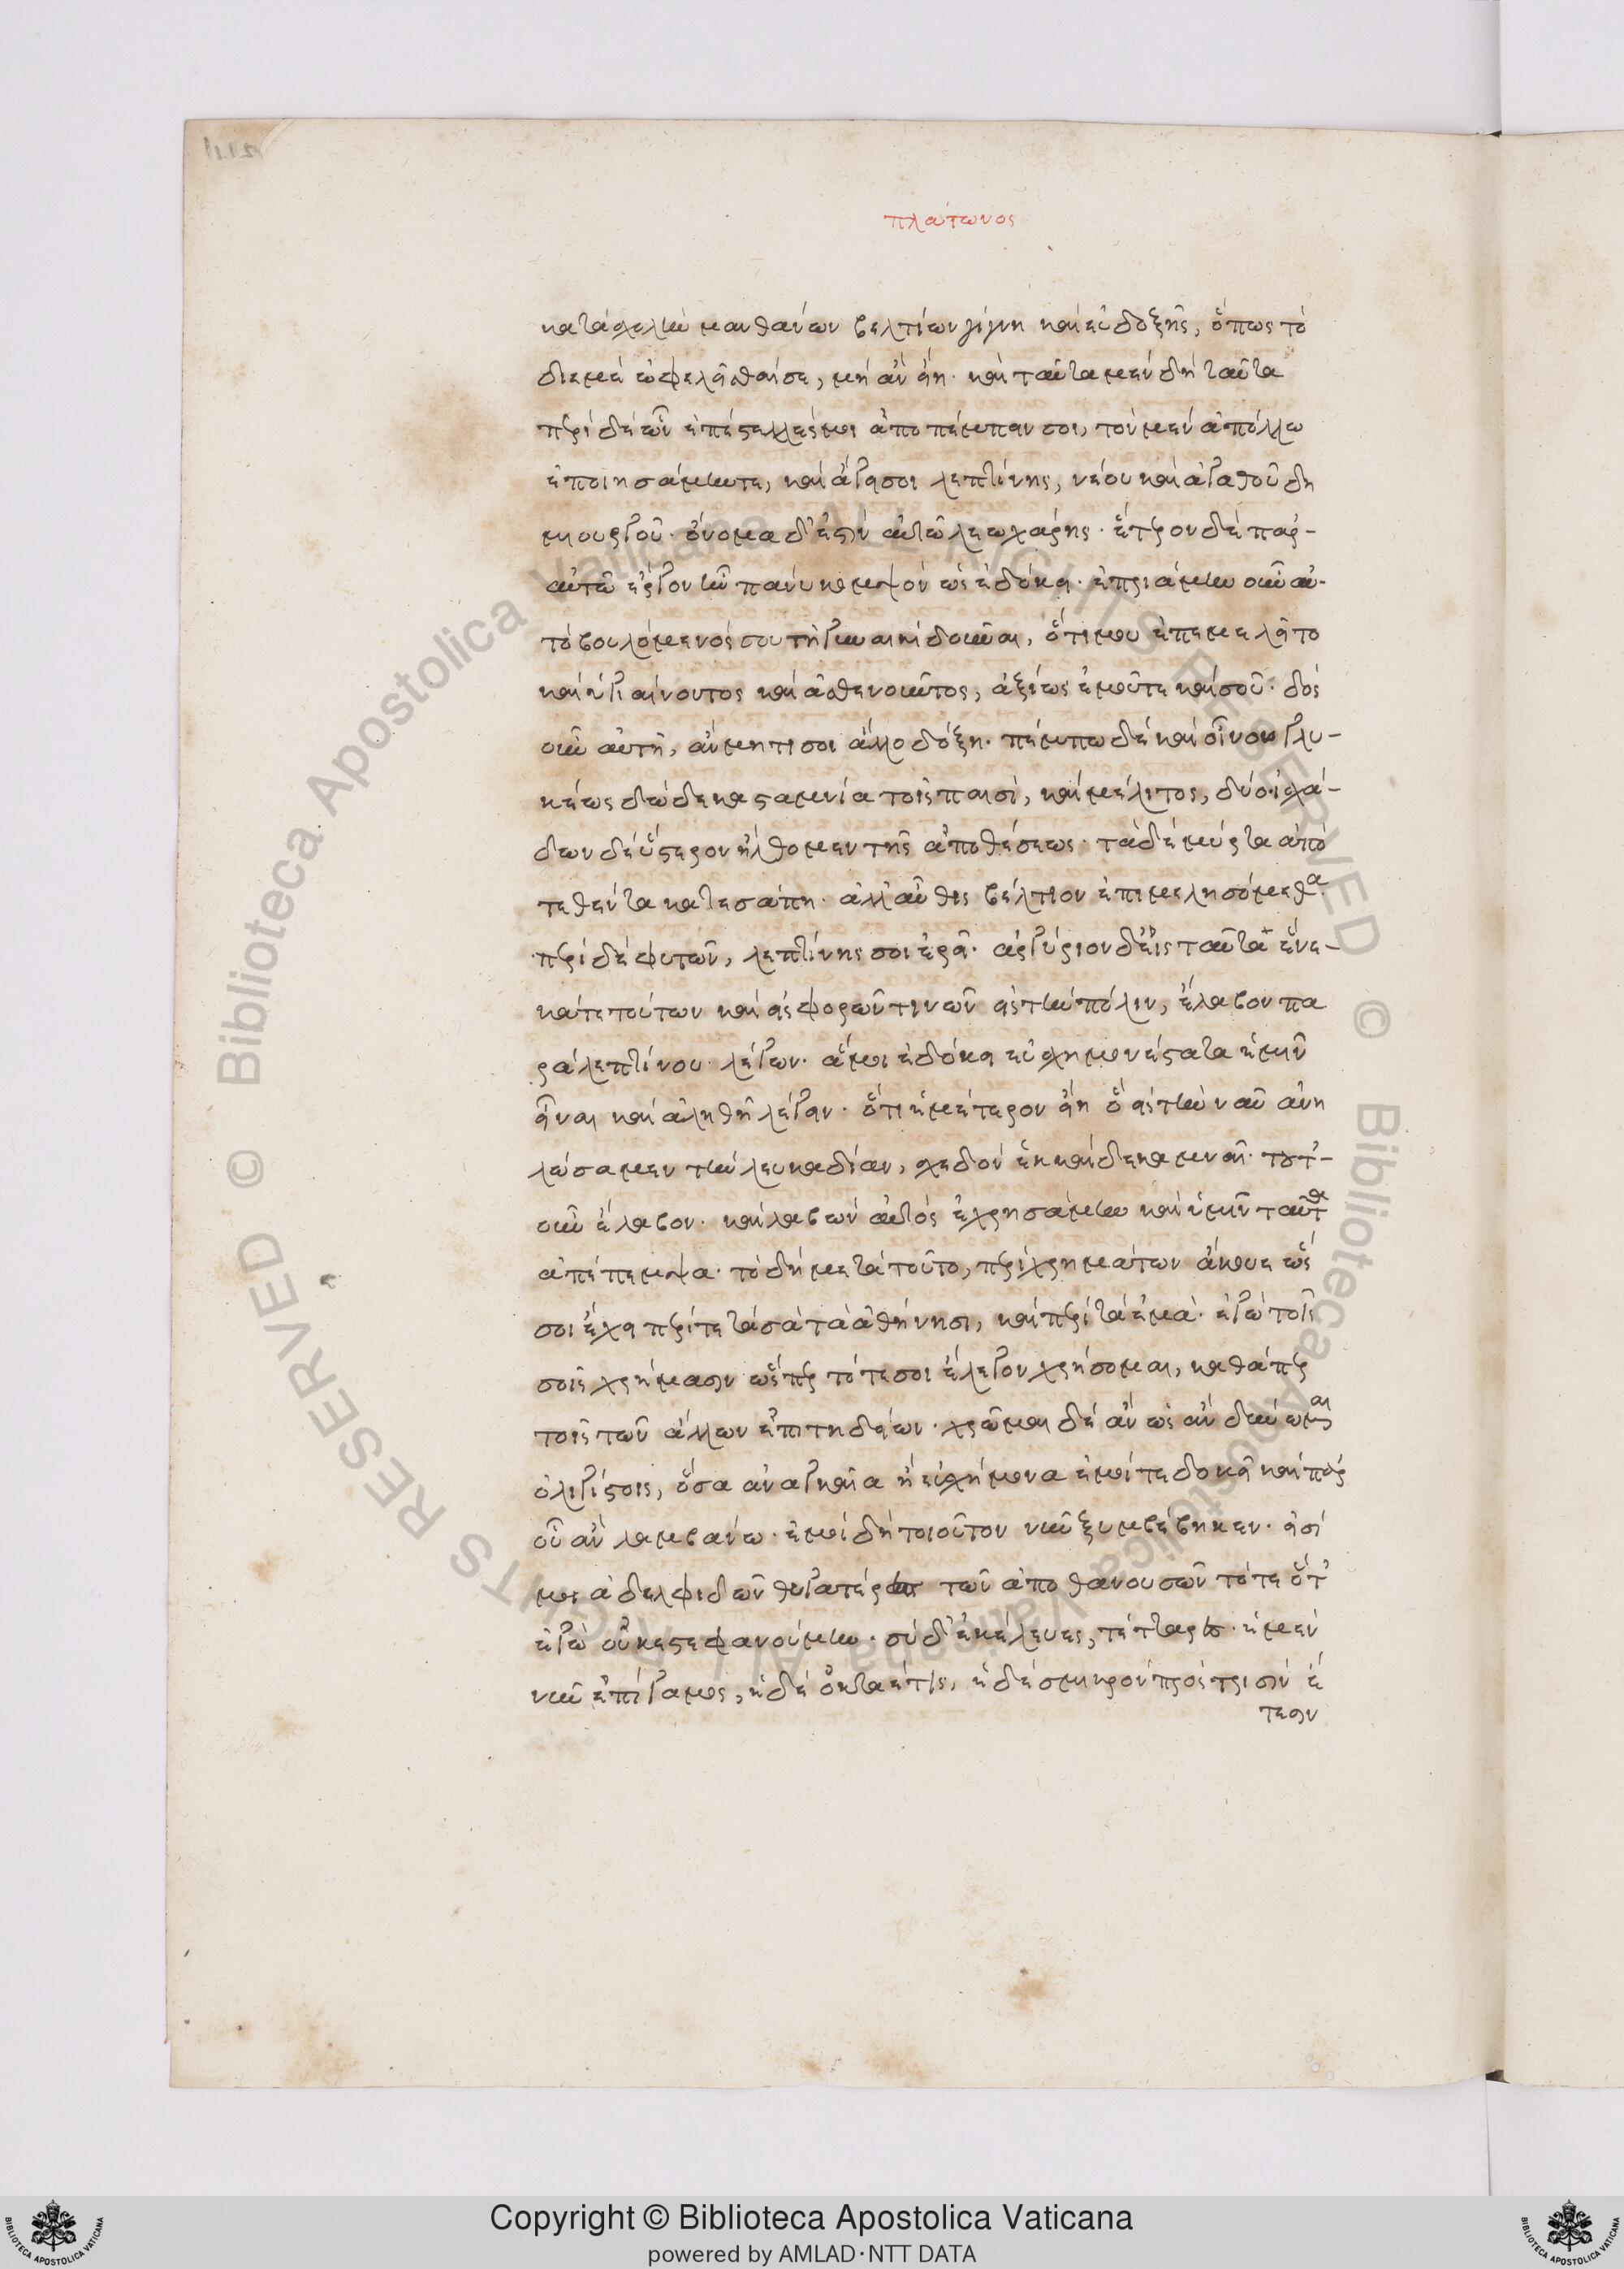 πλάτωνος
κατὰ σχολὴν μανθάνων βελτίων γίγνῃ καὶ εὐδοξῇς, ὅπως τὸ
δι' ἐμὲ ὠφελεῖσθαί σε, μὴ ἀνείη. καὶ ταῦτα μὲν δὴ ταῦτα
περὶ δὲ ὧν ἐπέστελλές μοι ἀποπέμπειν σοι, τὸν μὲν ἀπόλλω
ἐποιησάμην τε, καὶ ἄγει σοι λεπτίνης, νέου καὶ ἀγαθοῦ δη
μιουργοῦ. ὄνομα δ' ἐστὶν αὐτῷ λεωχάρης. ἕτερον δὲ παρ'-
αὐτῷ ἔργον ἦν πάνυ κομψὸν ὡς ἐδόκει. ἐπριάμην οὖν αὐ-
τὸ βουλόμενός σου τῇ γυναικὶ δοῦναι, ὅτι μου ἐπεμελεῖτο
καὶ ὑγιαίνοντος καὶ ἀσθενοῦντος, ἀξίως ἐμοῦ τε καὶ σοῦ. δὸς
οὖν αὐτῇ, ἂν μή τι σοι ἄλλο δόξῃ. πέμπω δὲ καὶ οἴνου γλυ-
κέως δώδεκα σταμνία τοῖς παισὶ, καὶ μέλιτος, δύο. ἰσχά-
δων δὲ ὕστερον ἤλθομεν τῆς ἀποθέσεως. τὰ δὲ μύρτα ἀπο
τεθέντα κατεσάπη. ἀλλ' αὖθις βέλτιον ἐπιμελησόμεθα.
περὶ δὲ φυτῶν, λεπτίνης σοι ἐρεῖ. ἀργύριον δ' εἰς ταῦτα ἕνε-
κά τε τούτων καὶ εἰσφορῶν τινῶν εἰς τὴν πόλιν, ἔλαβον πα
ρὰ λεπτίνου. λέγων. ἅ μοι ἐδόκει εὐσχημονέστατα ἡμῖν
εἶναι καὶ ἀληθῆ λέγειν. ὅτι ἡμέτερον εἴη ὃ εἰς τὴν ναῦν ἀνη
λώσαμεν τὴν λευκαδίαν, σχεδὸν ἑκκαίδεκα μναῖ. τοῦτ'-
οὖν ἔλαβον. καὶ λαβὼν αὐτός ἐχρησάμην καὶ ὑμῖν ταῦτα
ἀπέπεμψα. τὸ δὴ μετὰ τοῦτο, περὶ χρημάτων ἄκουε ὥς
σοι ἔχει περί τε τὰ σὰ τὰ ἀθήνησι, καὶ περὶ τὰ ἐμὰ. ἐγὼ τοῖς
σοῖς χρήμασιν ὥσπερ τότε σοι ἔλεγον χρήσομαι, καθάπερ
τοῖς τῶν ἄλλων ἐπιτηδείων. χρῶμαι δὲ ἂν ὡς ἂν δύνωμαι
ὀλιγίστοις, ὅσα ἀναγκαῖα ἢ εὐσχήμονα ἐμοί τε δοκεῖ καὶ παρ'
οὗ ἂν λαμβάνω. ἐμοὶ δὴ τοιοῦτον νῦν ξυμβέβηκεν. εἰσί
μοι ἀδελφιδῶν θυγατέρες τῶν ἀποθανουσῶν τότε ὅτ'
ἐγὼ οὐκ ἐστεφανούμην. σὺ δ' ἐκέλευες, τέτταρες. ἡ μὲν
νῦν ἐπίγαμος, ἡ δὲ ὀκταέτις, ἡ δὲ σμικρὸν πρὸς τρισὶν ἔ
τεσιν
Copyright © Biblioteca Apostolica Vaticana
powered by AMLAD·NTT DATA